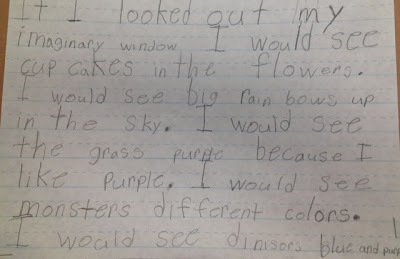 If I looked out my
imaginary window I would see
cup cakes in the flowers.
I would see big rain bows up
in the sky. I would see
the grass purple because I
like purple. I would see
monsters different colors.
I would see dinisors blue and